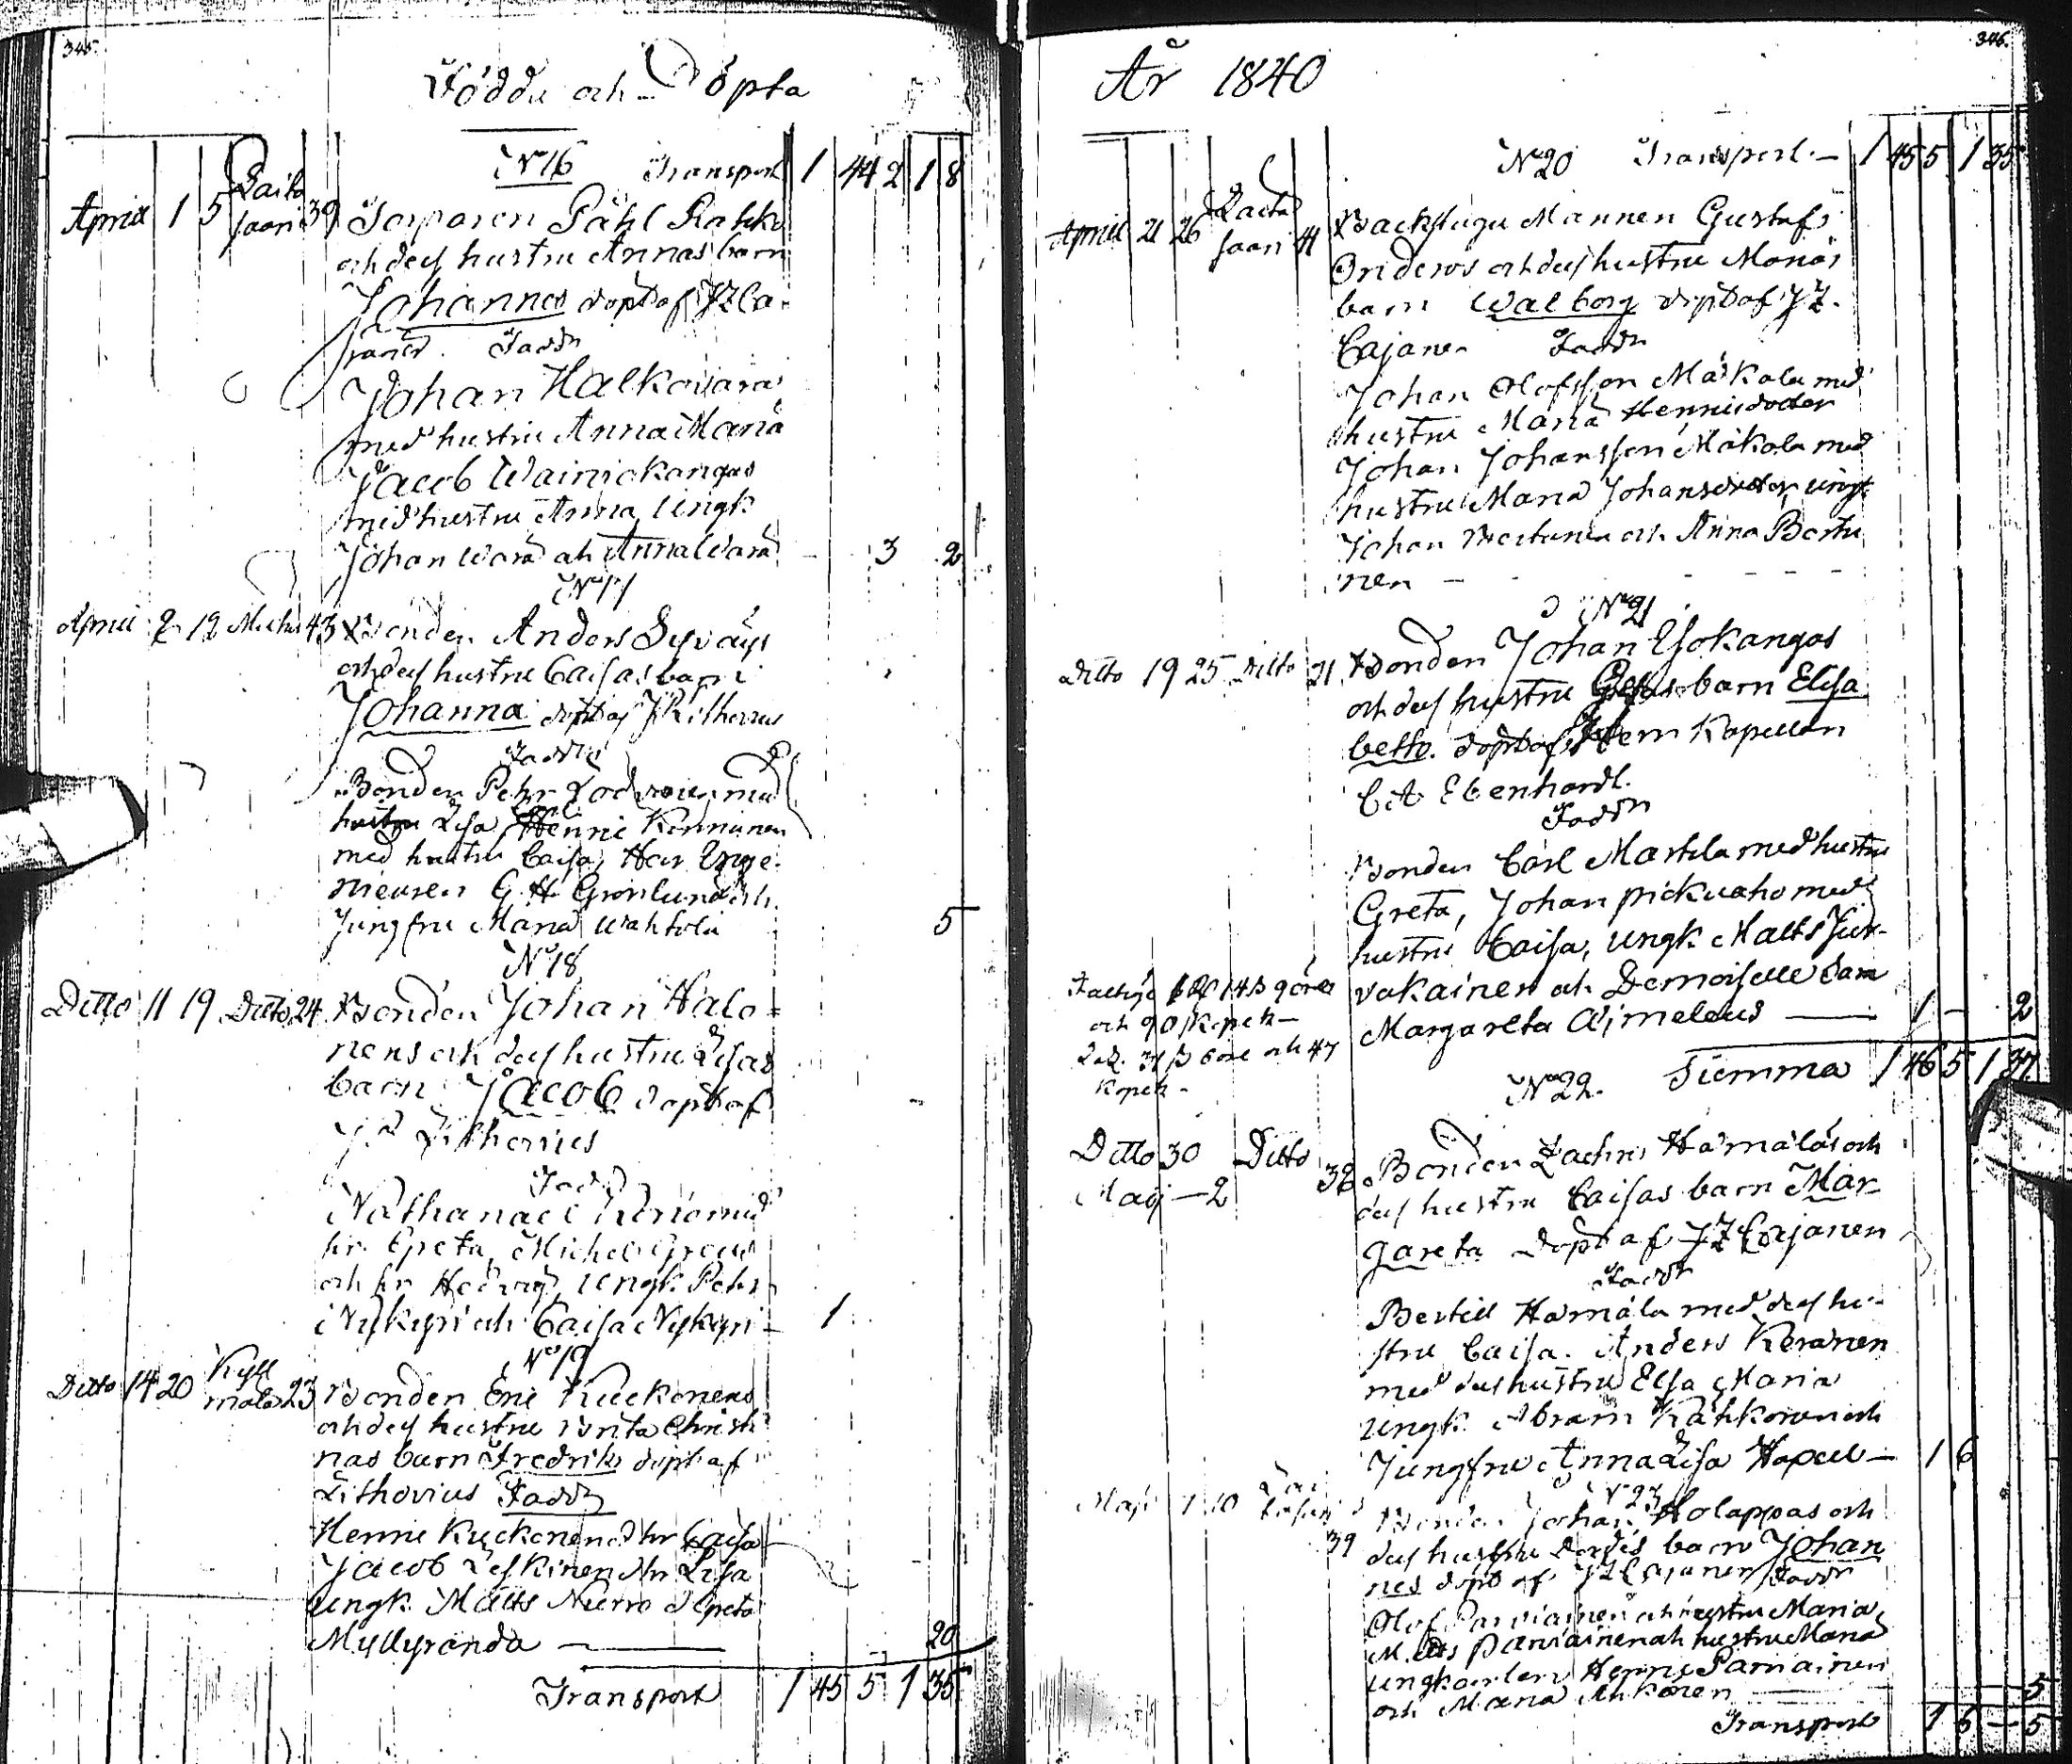 345.
Födde och Döpta
N°16 Transport 1 44 2 1 8
April 1 5 Laitasaari 39 Torparen Påhl Rahko
och dess hustru Annas barn
Johannes döpt af J Z Ca-
janer. Faddr
Johan Halkovaara
med hustru Anna Maria
Jacob Wainiokangas
med hustru Anna, Ungk
Johan Wara och Anna Wara - 3 2
N°17
April 2 12 Muhos 43 Bonden Anders
och dess hustru Caisas barn
Johanna döpt af J Lithovius
Faddr
Bonden Pehr med
hustru Lisa, Henric
med hustru Caisa, Herr Inge-
nieuren G H Grönlund och
Jungfru Maria Wahtola 5
N°18
Ditto 11 19 Ditto 24 Bonden Johan Halo-
nens och dess hustru Lisas
barn Jacob döpt af
J. Lithovius
Faddr
Nathanael med
hr. Greta, Michel
och hr Hedvig, Ungk. Petr
i Nykyri och Caisa Nykyri - 1
N°19
Ditto 14 20 Kyll mälä 23 Bonden Eric Kuckonens
och dess hustru Brita Christi
nas barn Fredrik döpt af
Lithovius Faddr
Henric Kuckonen & hr Caisa
Jacob Leskinen & hr Lisa
Ungk. Matts Nurro & Greta
Myllyranda - 20
Transport 1 45 5 1 35
346.
År 1840
N°20 Transport - 1 45 5 1 35
April 21 26 Laitasaari 41 Backstugu Mannen Gustaf
och dess hustru Marias
barn Walborg döpt af J Z.
Cajaner Faddr
Johan Olofsson Mäkola med
hustru Maria Hennicsdotter
Johan Johansson Mäkola med
hustru Maria Johansdotter, ungk
Johan och Anna Bertu
nen
N°21
Ditto 19 25 Ditto 21 Bonden Johan Isokangas
och dess hustru Gretas barn Elisa
beth. döpt af Herr Kapellan
C A Ebenhardt.
Faddr
Bonden Carl Martila med hustru
Greta, Johan Pickuaho med
hustru Caisa, Ungk. Matts Jur-
vakainen och Demoiselle Sara
Margareta Aimeleus - 1 - 2
Summa 1 46 5 1 37
N°22.
Ditto 30 Ditto
Maij - 2 38 Bonden Zachris Hämäläs och
dess hustru Caisas barn Mar-
gareta döpt af J Z Cajanen
Faddr
Bertill Hämälä med dess hu-
stru Caisa. Anders Keränen
med dess hustru Elsa Maria
Ungk. Abram Kähkönen och
Jungfru Anna Lisa - 1 6
N°23
Maji 7 10 39 Bonden Johan Holappas och
dess hustru barn Johan
nes döpt af J Z Cajaner Faddr
Olof Parviainen och hustru Maria
Matts Parviainen och hustru Maria
ungkarlen Henric Parviainen
och Maria 5
Transport 1 6 - 5